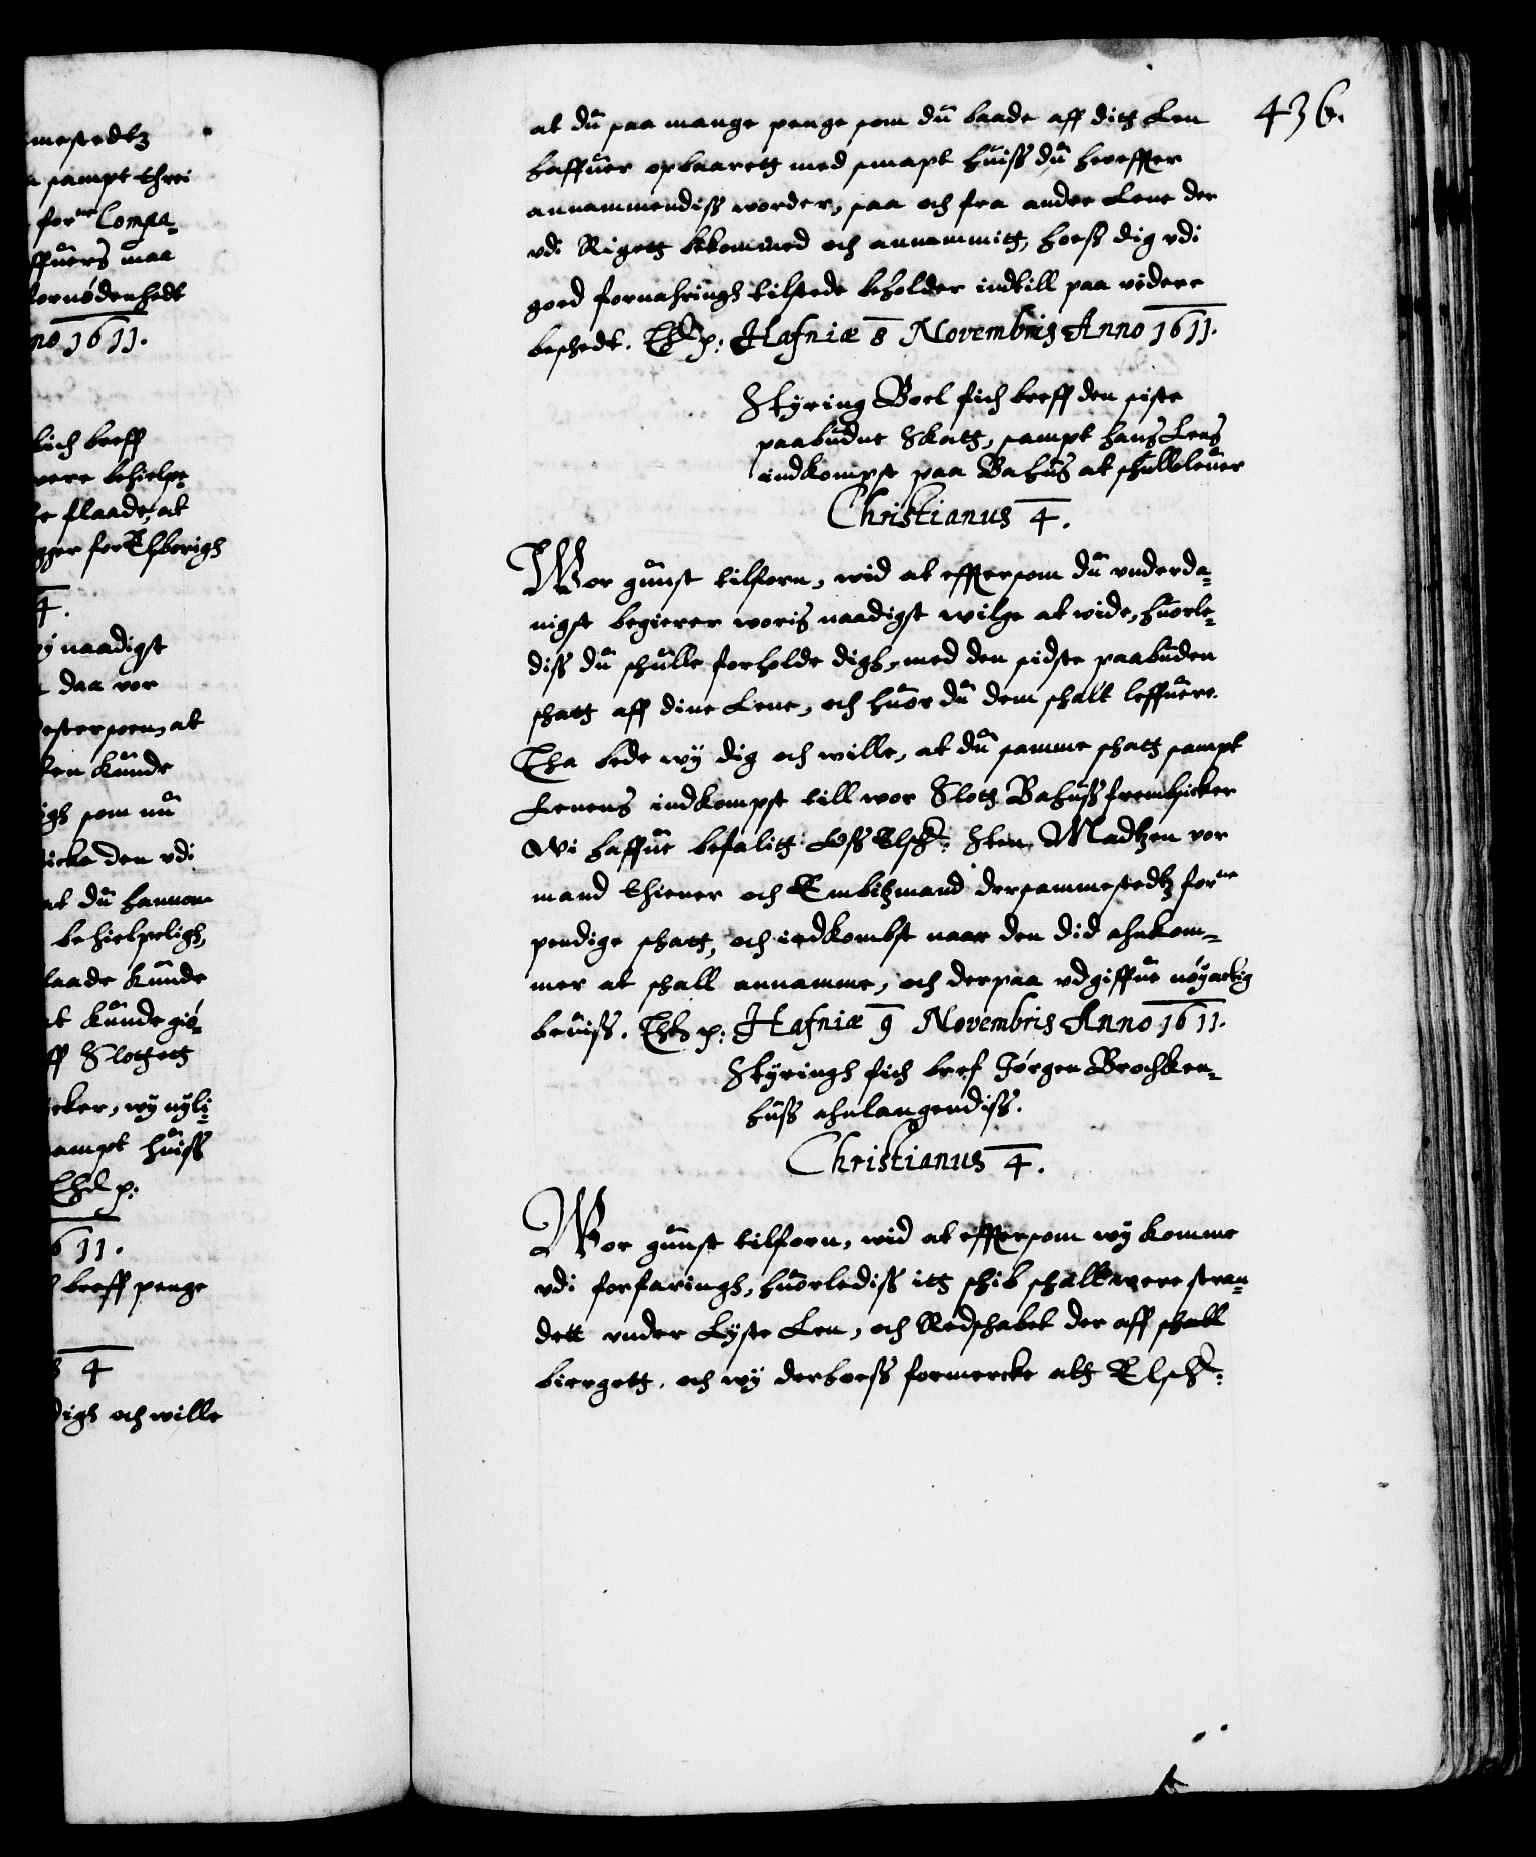 mestedtz
sampt threi
for:ne Compa-
ffuers maa
fornødenhedt
no 1611.
lich breff
vere behielpe
flaade, at
gger for Elsborigh
4.
wy naadigst
daa vor
at
ken kunde
igh som nu
icke den vdi
at du hannom
behielpeligh,
laade kunde
at kunde giø-
ff Slottett
cker, wy nyli-
ampt huiss
Thl p:
611.
breff penge
4
digh och wille
436.
at du saa mange penge som du baade aff ditt Len
haffuer opbaarett med sampt huiss du hereffter
annammendiss worder, saa och fra andre Lene der
vdi Rigett bekommed och annammitt, hoess dig vdi
goed fornahringh tilstede beholder indtill paa videre
beschedt. Thl p: Hafniæ 8 Novembris Anno 1611.
Styring Boel fich breff den siste
paabudne Skatt, sampt hans Lens
indkompst paa Bahus at schulle leuer
Christianus 4.
Wor gunst tilforn, wid at efftersom du vnderda-
nigst begierer woris naadigst wilge at wide, huorle-
diss du schulle forholde digh, med den sidste paabuden
schatt aff dine Lene, och huor du dem schalt leffuere.
Tha bede wy dig och wille, at du samme schatt sampt
Lenens indkompst till wor Slott Bahuss fremschicker
Wi haffue befalitt Oss Elsch: Sten Madtzen vor
mand thiener och Embitzmand dersammestedtz for:ne
pendige schatt, och indkombst naar den did ahnkom-
mer at schall annamme, och derpaa vdgiffue nøyactig
beuiss. Thl p: Hafniæ 9 Novembris Anno 1611.
Styringh fich bref Jørgen Brochken-
huss ahnlangendiss.
Christianus 4.
Wor gunst tilforn, wid at efftersom wy komme
vdi forfaringh, huorlediss itt schib schall were stran-
dett vnder Lyste Len, och Redschabet der aff schall
biergett, och wy derhoess formercke att Elsch: